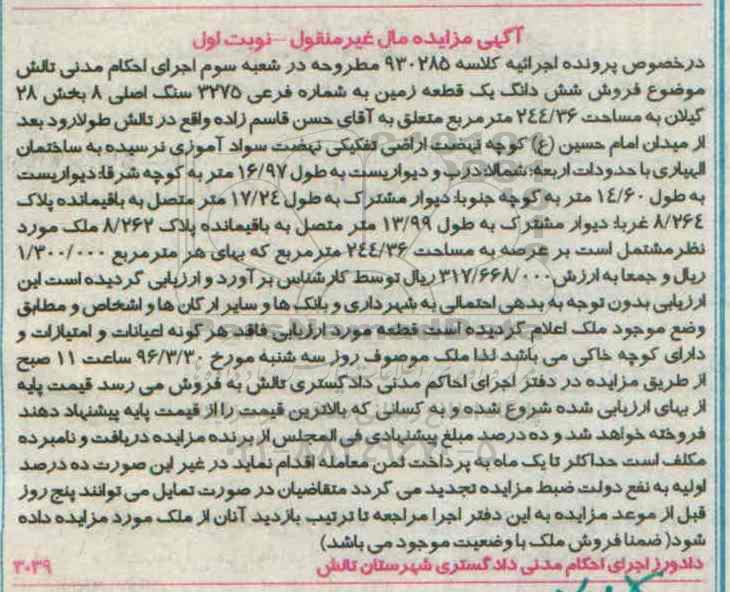 آگهی مزایده مال غیرمنقول - نوبت اول
درخصوص پرونده اجرائیه کلاسه ۹۳۰۲۸۵ مطروحه در شعبه سوم اجرای احکام مدنی تالش
موضوع فروش شش دانگ یک قطعه زمین به شماره فرعی ۳۲۷۵ سنگ اصلی ۸ بخش ۲۸
گیلان به مساحت ۲۴۴/۳۶ متر مربع متعلق به آقای حسن قاسم زاده واقع در تالش طولارود بعد
از میدان امام حسین (ع) کوچه نهضت اراضی تفکیکی نهضت سواد آموزی نرسیده به ساختمان
الهیاری با حدودات اربعه: شمالا: درب و دیواریست به طول ۱۶/۹۷ متر به کوچه شرقا: دیواریست
به طول ۱۴/۶۰ متر به کوچه جنوبا: دیوار مشترک به طول ۱۷/۲۴ متر متصل به باقیمانده پلاک
۸/۲۶۴ غربا: دیوار مشترک به طول ۱۳/۹۹ متر متصل به باقیمانده پلاک ۸/۲۶۲ ملک مورد
نظر مشتمل است بر عرصه به مساحت ۲۴۴/۳۶ متر مربع که بهای هر متر مربع ۱/۳۰۰/۰۰۰
ریال و جمعا به ارزش ۳۱۷/۶۶۸/۰۰۰ ریال توسط کارشناس بر آورد و ارزیابی گردیده است این
ارزیابی بدون توجه به بدهی احتمالی به شهرداری و بانک ها و سایر ارکان ها و اشخاص و مطابق
وضع موجود ملک اعلام گردیده است قطعه مورد ارزیابی فاقد هر گونه اعیانات و امتیازات و
دارای کوچه خاکی می باشد لذا ملک موصوف روز سه شنبه مورخ ۹۶/۳/۳۰ ساعت ۱۱ صبح
از طریق مزایده در دفتر اجرای احاکم مدنی دادگستری تالش به فروش می رسد قیمت پایه
از بهای ارزیابی شده شروع شده و به کسانی که بالاترین قیمت را از قیمت پایه پیشنهاد دهند
فروخته خواهد شد و ده درصد مبلغ پیشنهادی فی المجلس از برنده مزایده دریافت و نامبرده
مکلف است حداکثر تا یک ماه به پرداخت ثمن معامله اقدام نماید در غیر این صورت ده درصد
اولیه به نفع دولت ضبط مزایده تجدید می گردد متقاضیان در صورت تمایل می توانند پنج روز
قبل از موعد مزایده به این دفتر اجرا مراجعه تا ترتیب بازدید آنان از ملک مورد مزایده داده
شود( ضمنا فروش ملک با وضعیت موجود می باشد)
دادورز اجرای احکام مدنی دادگستری شهرستان تالش ۳۰۳۹